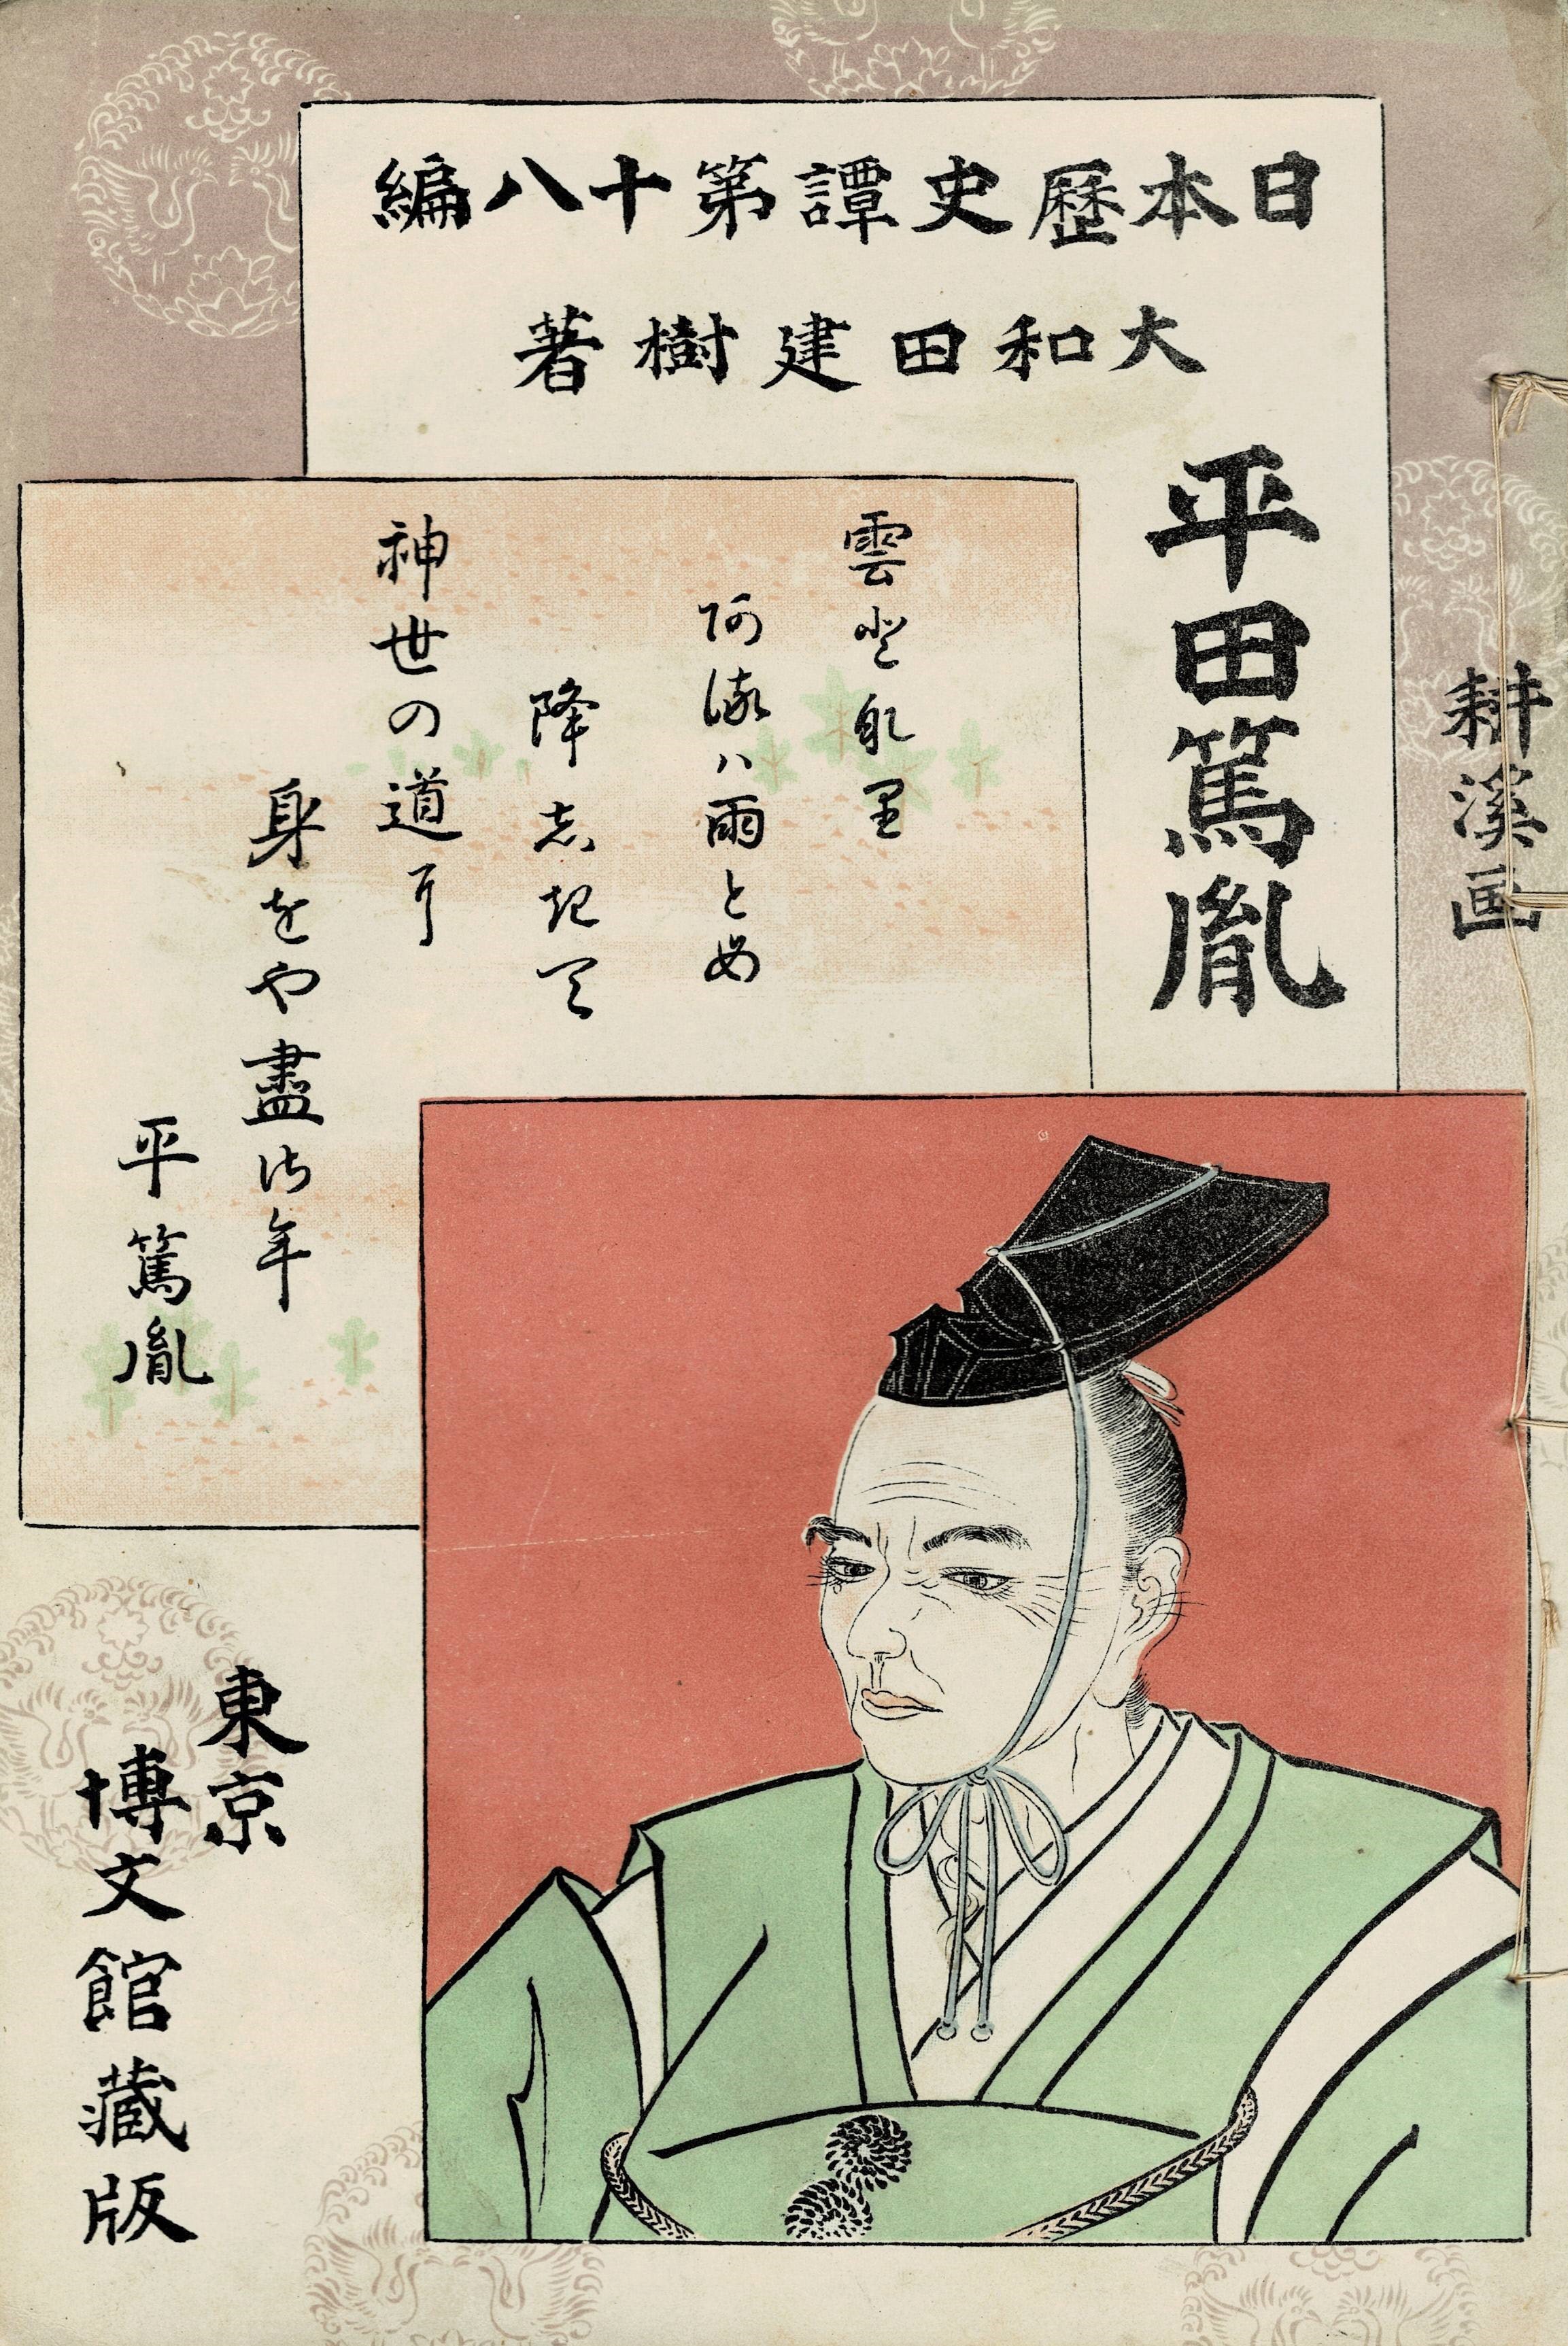 日本歷史譚第十八編
大和田建樹著
平田篤胤
耕溪画
雲登那里
阿流ハ雨とも
降志起天
神世の道耳
身をや盡佐年
平篤胤
東京
博文館藏版